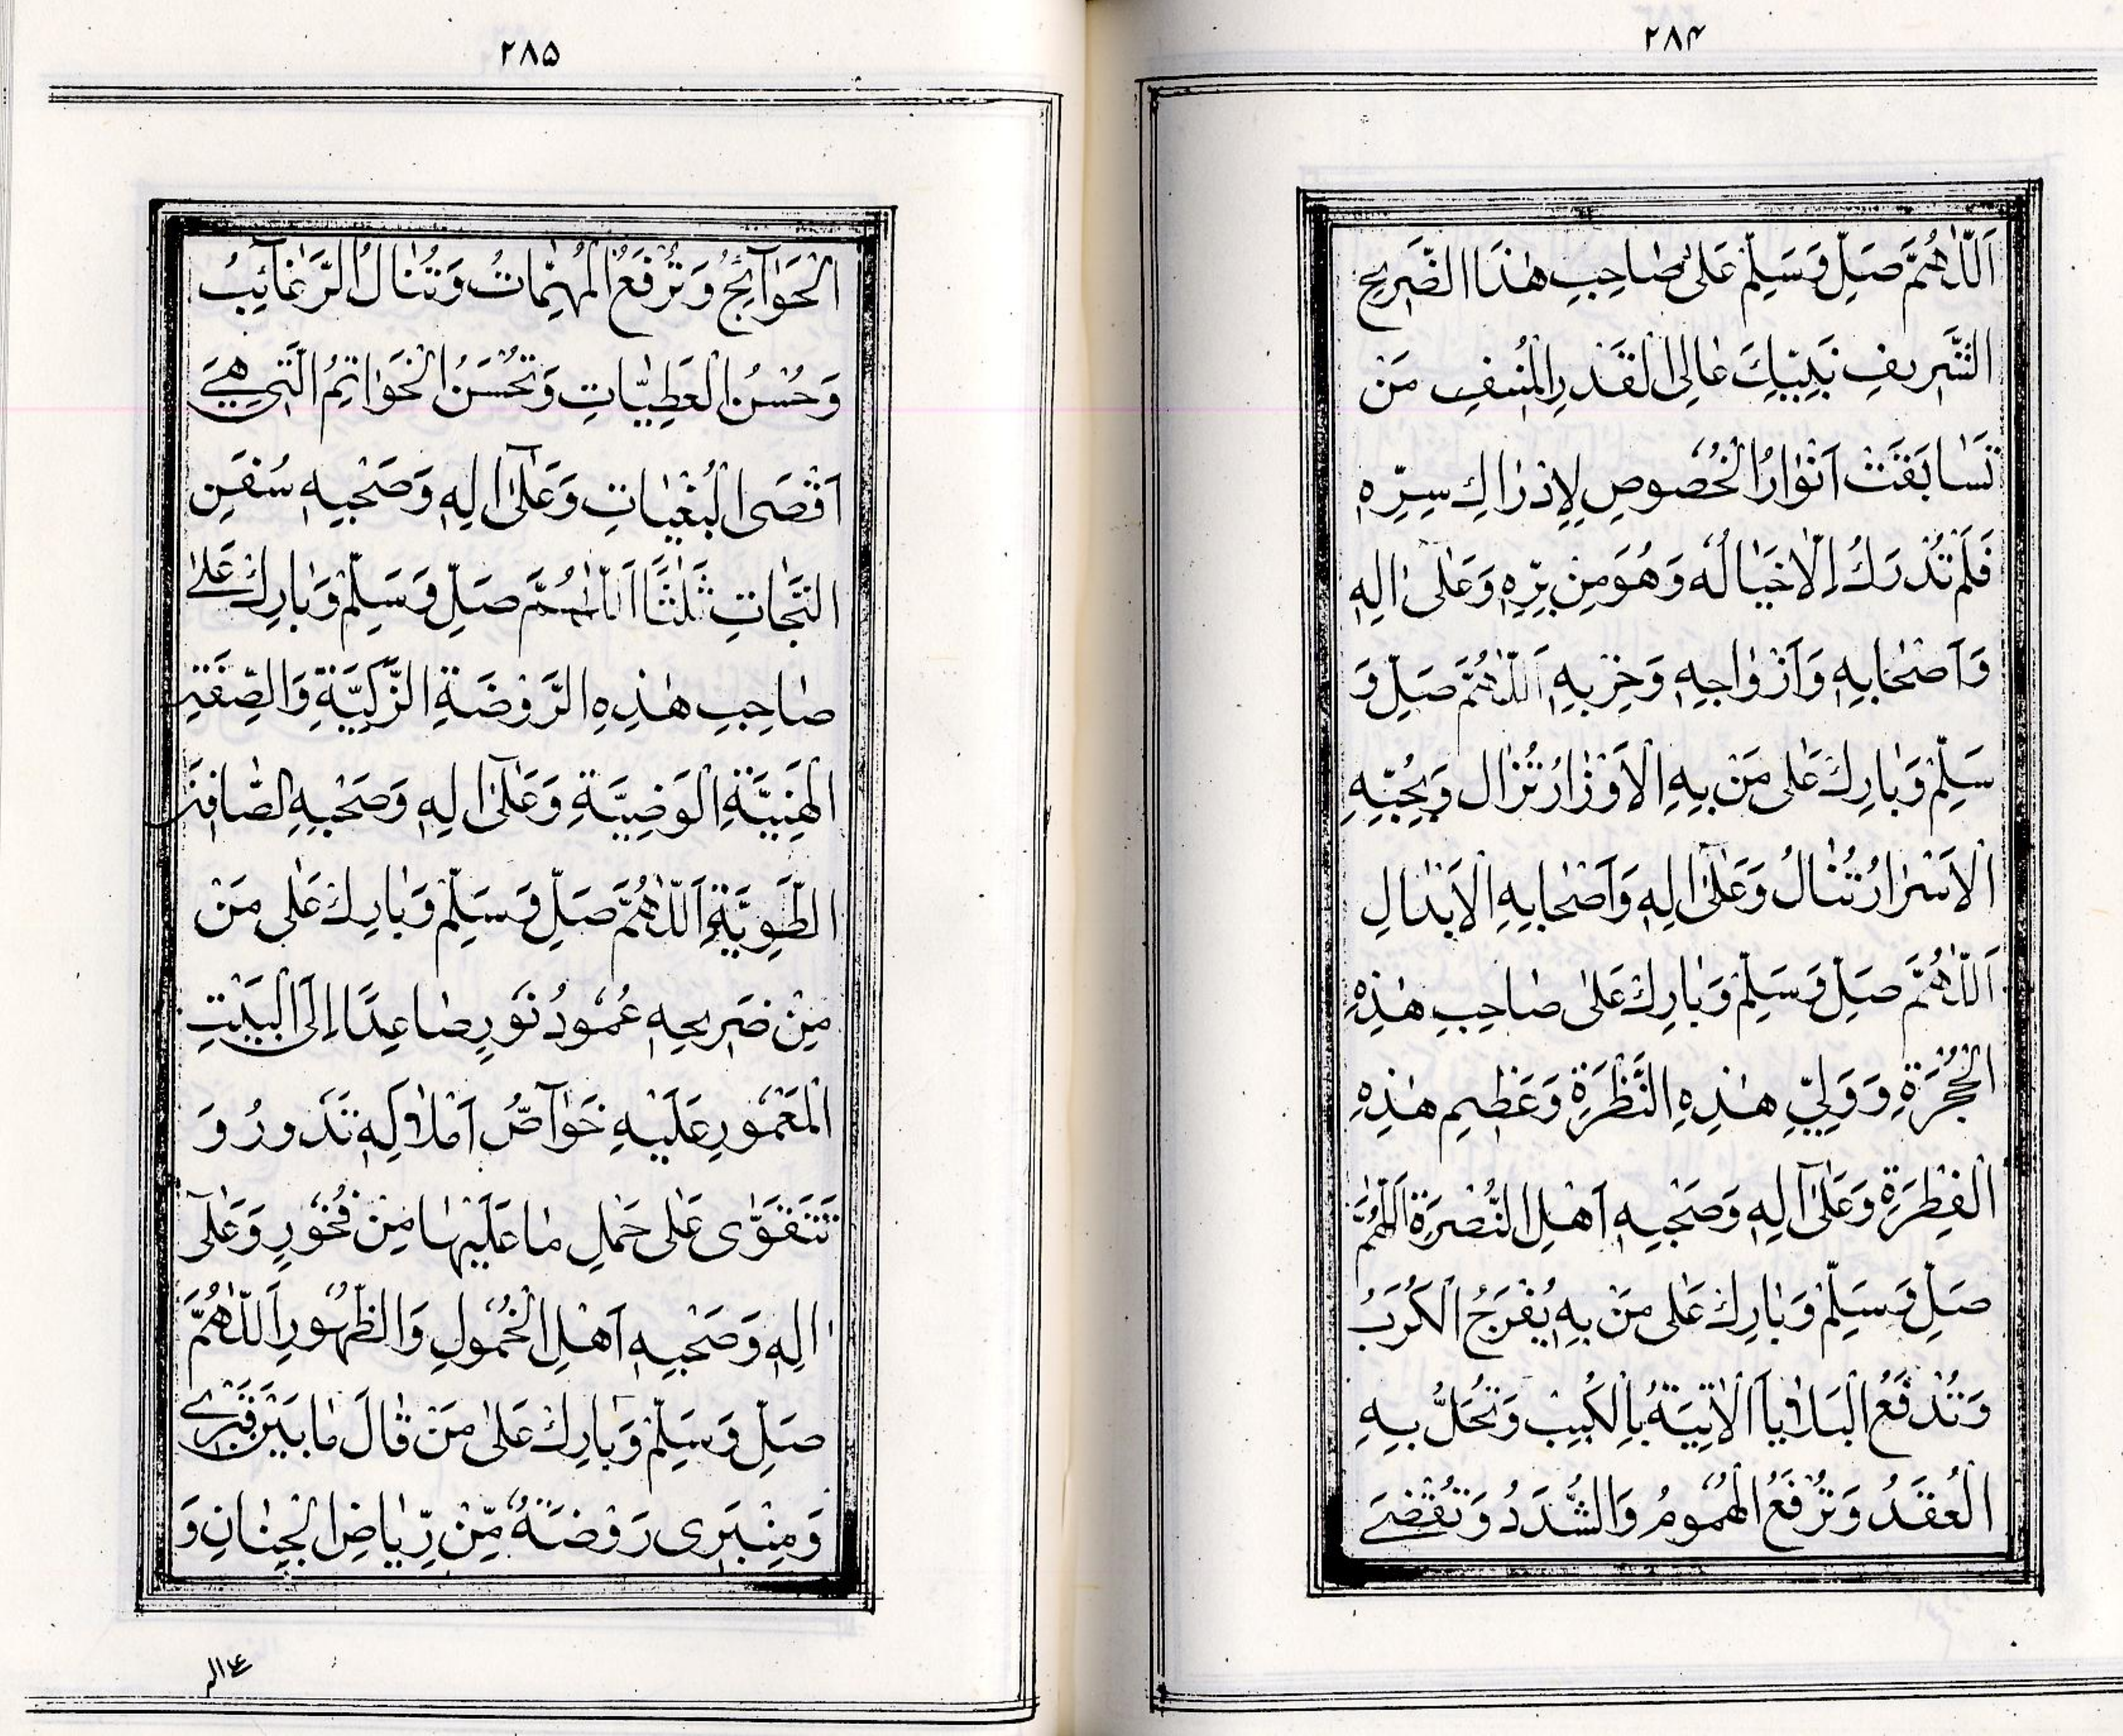 ۲۸۴
اَللّٰهُمَّ صَلِّ وَسَلِّمْ عَلٰى صَاحِبِ هٰذَا الضَّرِيحِ
الشَّرِيفِ نَبِيِّكَ عَالِى الْقَدْرِ الْمُنِيفِ مَنْ
تَسَابَقَتْ اَنْوَارُ الْخُصُوصِ لِاِدْرَاكِ سِرِّهٖ
فَلَمْ تُدْرَكْ اِلَّا خَيَالُهٗ وَهُوَ مِنْ بِرِّهٖ وَعَلٰى اٰلِهٖ
وَاَصْحَابِهٖ وَاَزْوَاجِهٖ وَحِزْبِهٖ اَللّٰهُمَّ صَلِّ وَ
سَلِّمْ وَبَارِكْ عَلٰى مَنْ بِهِ الْاَوْزَارُ تُزَالُ وَبِحُبِّهِ
الْاَسْرَارُ تُنَالُ وَعَلٰٓى اٰلِهٖ وَاَصْحَابِهِ الْاَبْدَالِ
اَللّٰهُمَّ صَلِّ وَسَلِّمْ وَبَارِكْ عَلٰى صَاحِبِ هٰذِهِ
الْحُجْرَةِ وَوَلِيِّ هٰذِهِ النَّظْرَةِ وَعَظِيمِ هٰذِهِ
الْفِطْرَةِ وَعَلٰٓى اٰلِهٖ وَصَحْبِهٖ اَهْلِ النُّصْرَةِ اَللّٰهُمَّ
صَلِّ وَسَلِّمْ وَبَارِكْ عَلٰى مَنْ بِهٖ يُفْرَجُ الْكُرَبُ
وَتُدْفَعُ الْبَلَايَا الْاٰتِيَةُ بِالْكَيْبِ وَتُحَلُّ بِهِ
الْعُقَدُ وَتُرْفَعُ الْهُمُومُ وَالشُّدَدُ وَتُقْضَى
۲۸۵
الْحَوَآئِجُ وَتُرْفَعُ الْمُهِمَّاتُ وَتُنَالُ الرَّغَآئِبُ
وَحُسْنُ الْعَطِيَّاتِ وَتُحْسَنُ الْخَوَاتِمُ الَّتِى هِىَ
اَقْصَى الْبُغْيَاتِ وَعَلٰٓى اٰلِهٖ وَصَحْبِهٖ سُفُنِ
النَّجَاتِ ثَلٰثًا اَللّٰهُمَّ صَلِّ وَسَلِّمْ وَبَارِكْ عَلٰى
صَاحِبِ هٰذِهِ الرَّوْضَةِ الزَّكِيَّةِ وَالصِّفَةِ
الْهَنِيَّةِ الْوَضِيَّةِ وَعَلٰٓى اٰلِهٖ وَصَحْبِهِ الصَّافِيَةِ
الطَّوِيَّةِ اَللّٰهُمَّ صَلِّ وَسَلِّمْ وَبَارِكْ عَلٰى مَنْ
مِنْ ضَرِيحِهٖ عُمُودُ نُورٍ صَاعِدًا اِلَى الْبَيْتِ
الْمَعْمُورِ عَلَيْهِ خَوَآصُّ اَمْلَاكِهٖ تَدُورُ وَ
تَتَقَوَّى عَلٰى حَمْلِ مَا عَلَيْهَا مِنْ فُخُورٍ وَعَلٰٓى
اٰلِهٖ وَصَحْبِهٖ اَهْلِ الْخُمُولِ وَالظُّهُورِ اَللّٰهُمَّ
صَلِّ وَسَلِّمْ وَبَارِكْ عَلٰى مَنْ قَالَ مَا بَيْنَ قَبْرِى
وَمِنْبَرِى رَوْضَةٌ مِّنْ رِّيَاضِ الْجِنَانِ وَ